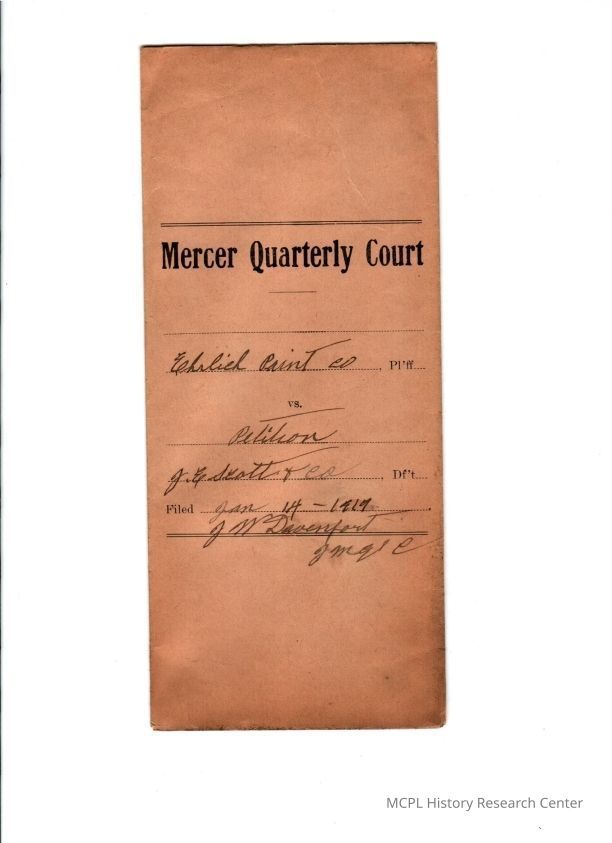 Mercer Quarterly Court
Ehrlich Paint Co, Pl'ff.
vs.
Petition
J. E. Scott & Co, Df't.
Filed Jan 14 - 1919.
J W Davenport
MCPL History Research Center